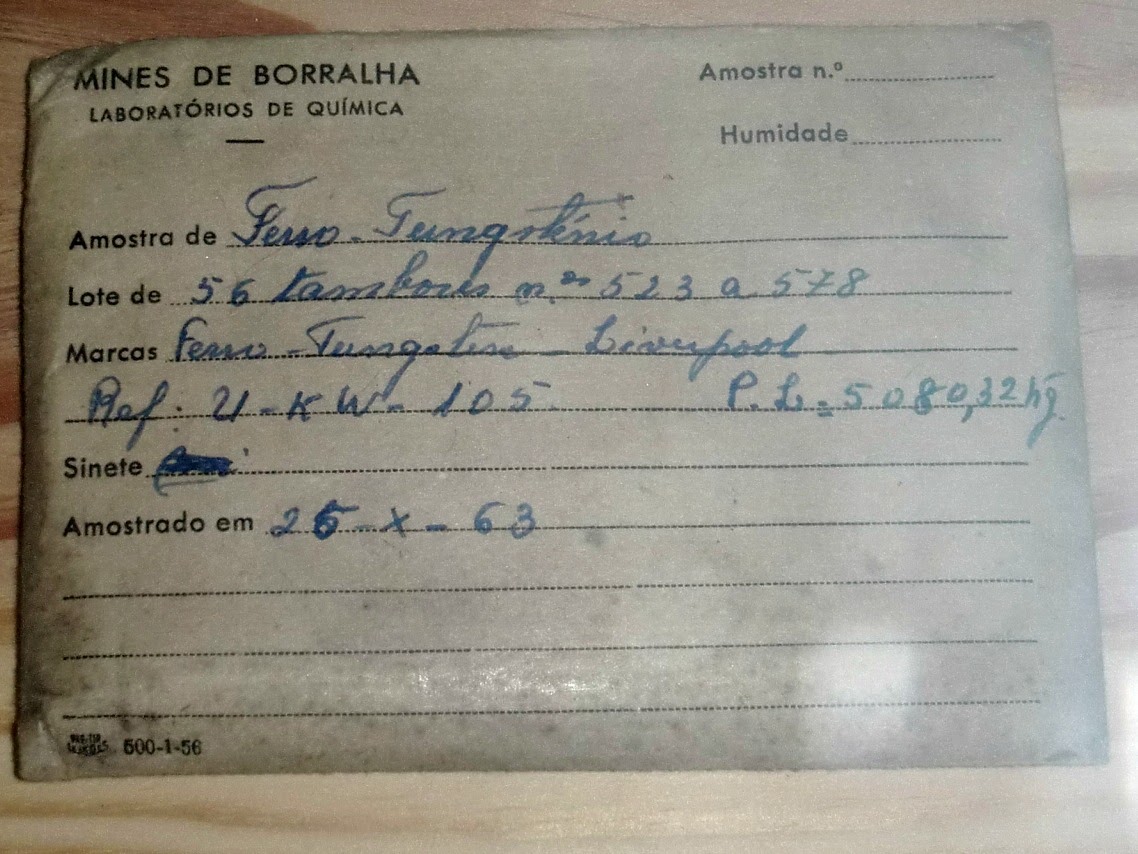 MINES DE BORRALHA
LABORATÓRIOS DE QUÍMICA
Amostra n.º
Humidade
Amostra de Ferro-Tungsténio
Lote de 56 tambores n.os 523 a 578
Marcas Ferro-Tungsten - Liverpool
Ref: U-KW-105 P.L. = 5080,32 kg.
Sinete
Amostrado em 25-X-63
500-1-56